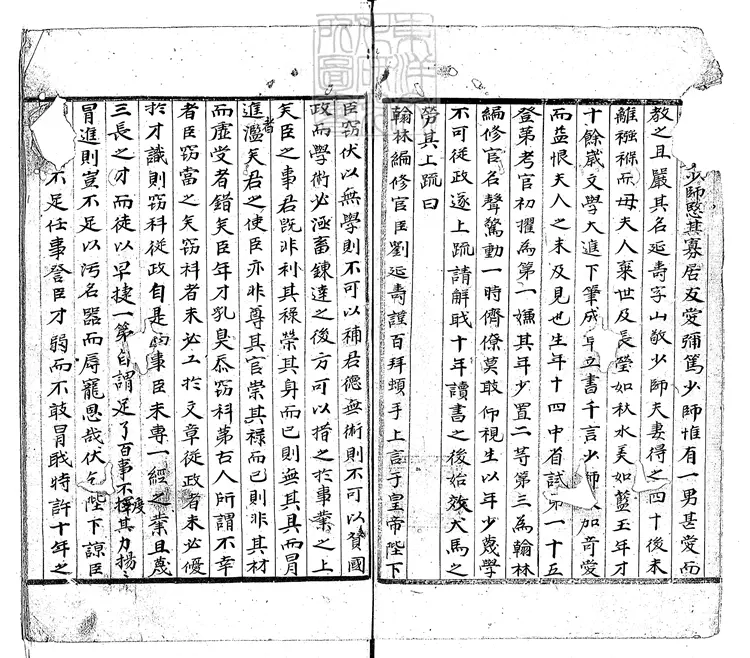 少師愍其寡居友愛彌篤少師惟有一男甚愛而
教之且嚴其名延壽字山敬少師夫妻得之四十後未
離襁褓而毋夫人棄世及長瑩如秋水美如藍玉年才
十餘歲文學大進下筆成章立書千言少師加奇愛
而益恨夫人之未及見也生年十四中省試第一十五
登第考官初擢為第一嫌其年少置二等第三為翰林
編修官名聲驚動一時儕僚莫敢仰視生以年少蔑學
不可從政遂上疏請解職十年讀書之後始效犬馬之
勞其上疏曰
翰林編修官臣劉延壽謹百拜頓手上言于皇帝陛下
臣窃伏以無學則不可以補君德無術則不可以贊國
政而學術必涵畜鍊達之後方可以措之於事業之上
矣臣之事君既非利其禄榮其身而已則無其具而冒
進者濫矣君之使臣亦非尊其官崇其禄而已則非其材
而虛受者錯矣臣年才乳臭忝窃科第古人所謂不幸
者臣窃當之矣窃科者未必工於文章從政者未必優
於才識則窃科從政自是事臣未專一經之業且蔑
三長之才而徒以早捷一第自謂足了百事不度其力揚
冒進則豈不足以污名器而辱寵恩哉伏乞陛下諒臣
不足任事登臣才弱而不敢冒職特許十年之